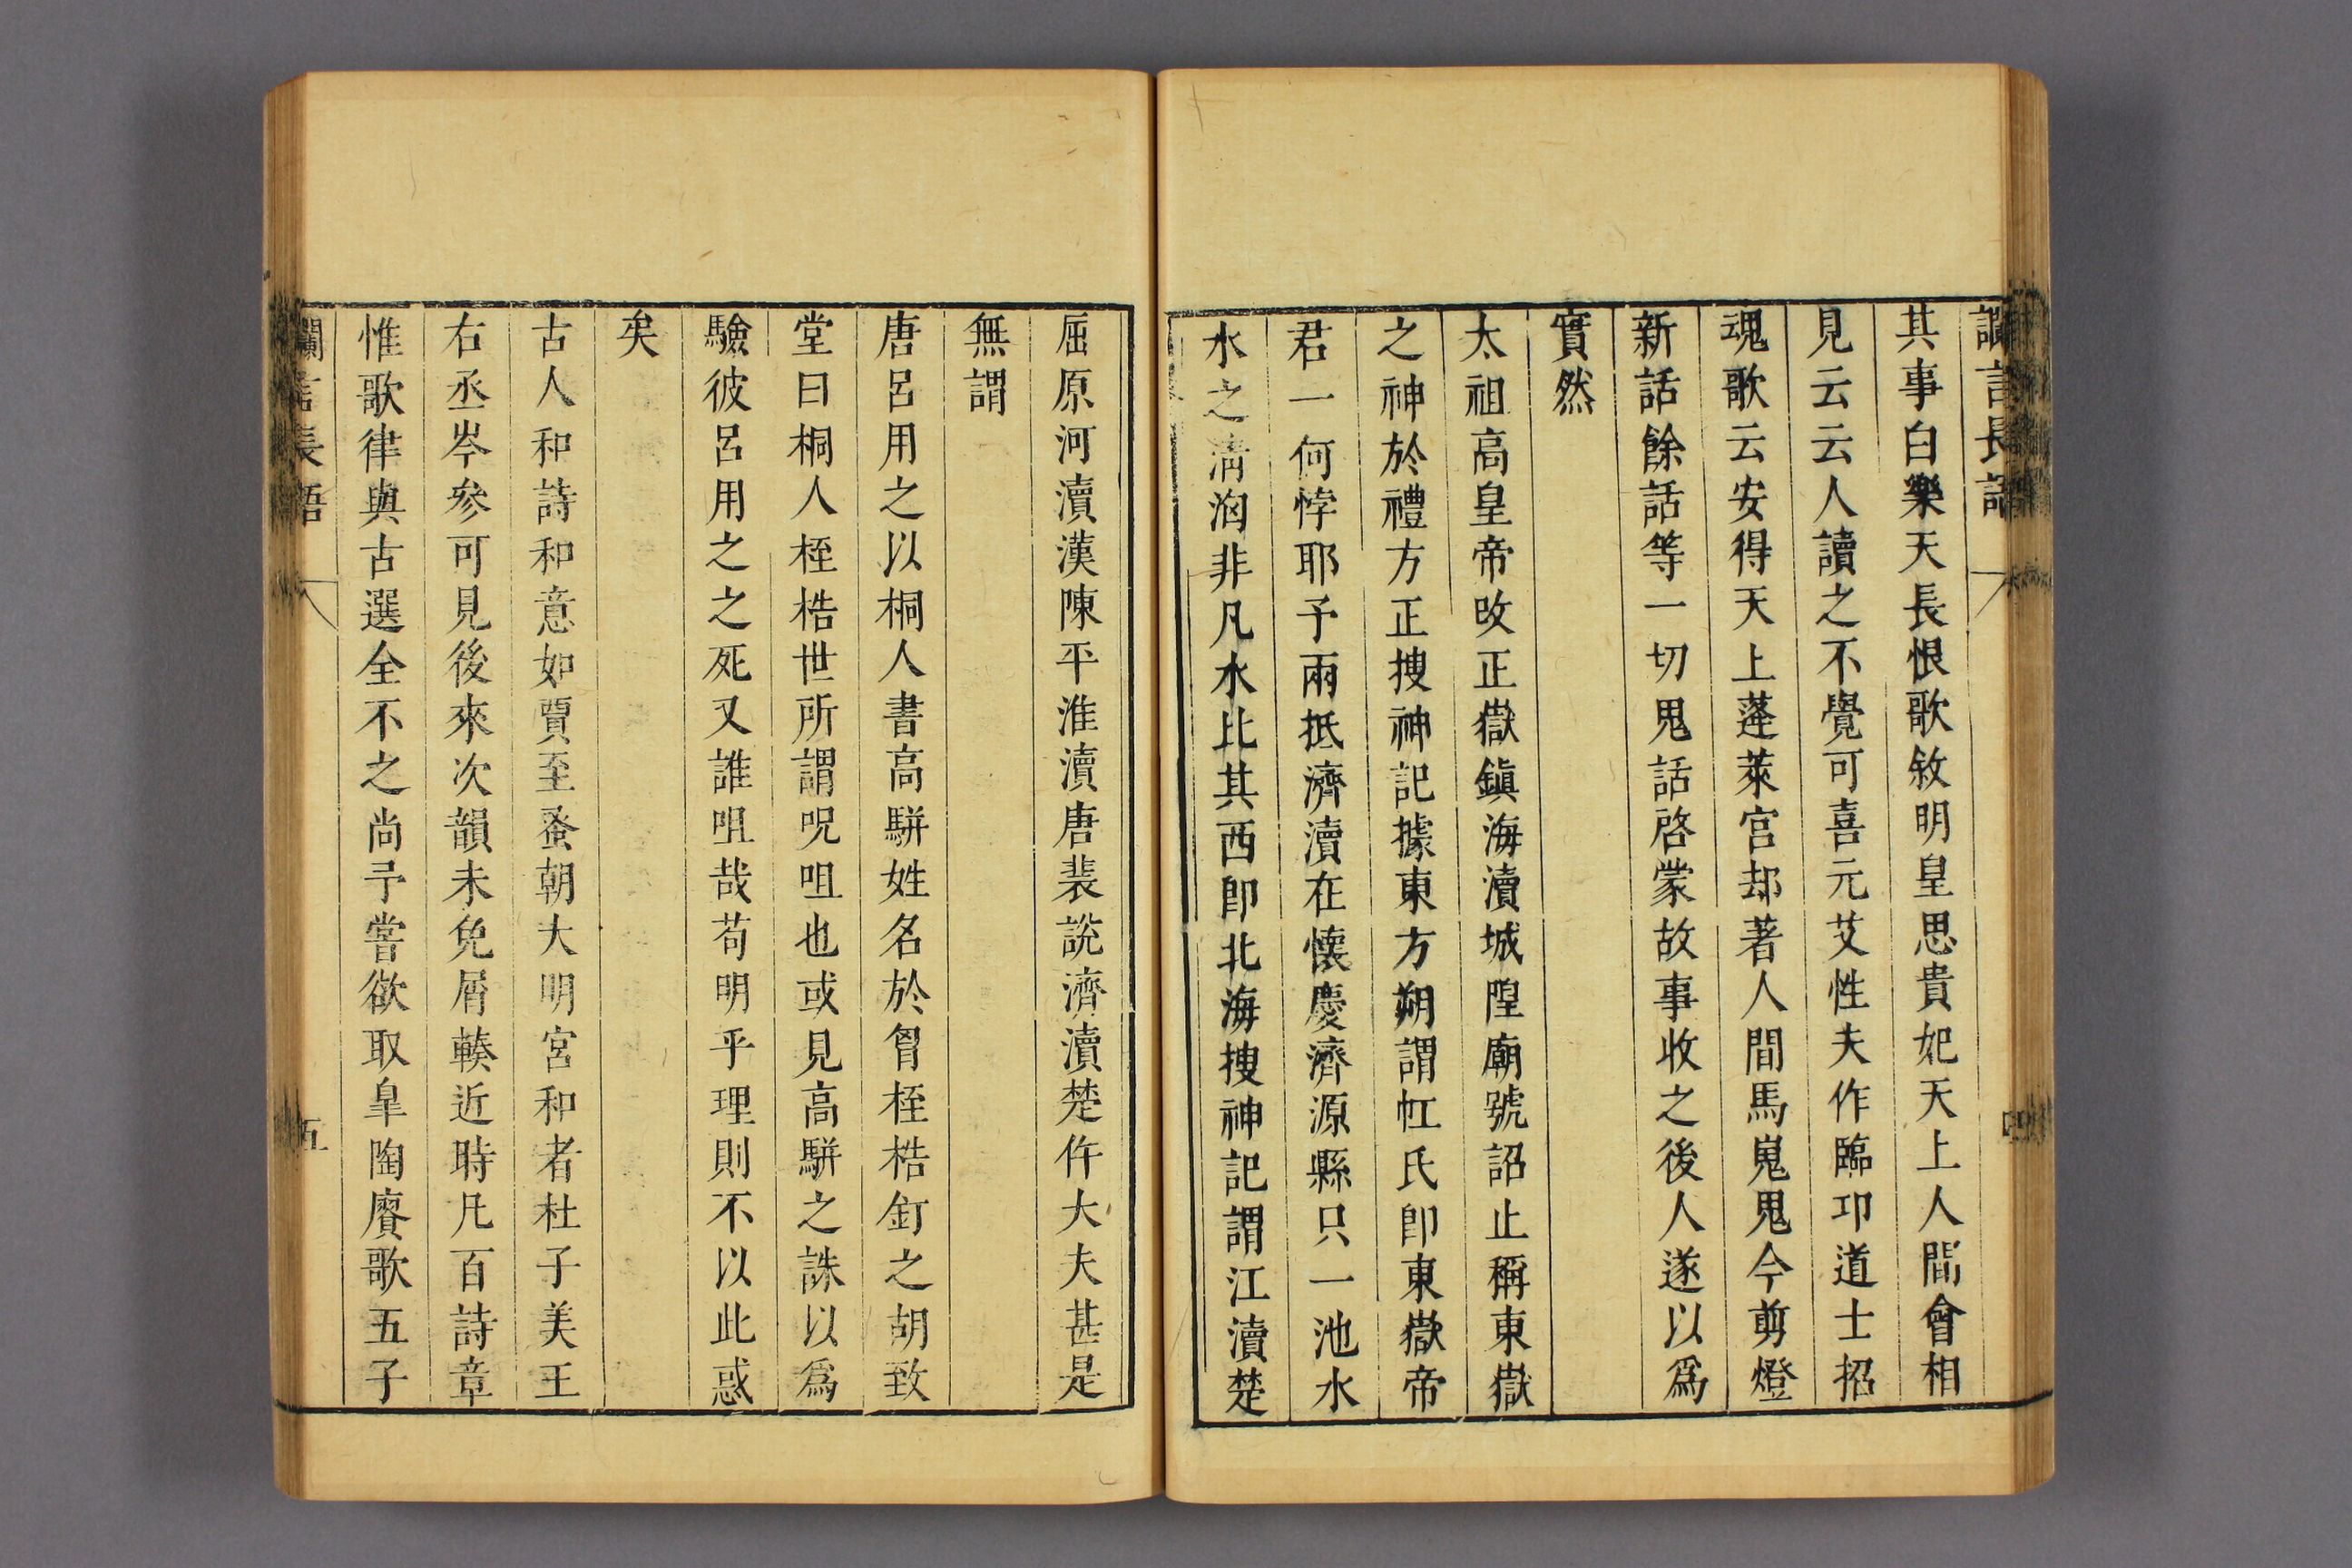 讕言長語 四
其事白樂天長恨歌敘明皇思貴妃天上人間會相
見云云人讀之不覺可喜元艾性夫作臨卭道士招
魂歌云安得天上蓬萊宫却著人間馬嵬鬼今剪燈
新話餘話等一切鬼話啓蒙故事收之後人遂以爲
實然
太祖高皇帝攺正嶽鎭海瀆城隍廟號詔止稱東嶽
之神於禮方正搜神記據東方朔謂㠪氏卽東嶽帝
君一何悖耶予兩抵濟瀆在懷慶濟源縣只一池水
水之淸洶非凡水比其西卽北海搜神記謂江瀆楚
屈原河瀆漢陳平淮瀆唐裴說濟瀆楚作大夫甚是
無謂
唐呂用之以桐人書高駢姓名於胷桎梏釘之胡致
堂曰桐人桎梏世所謂呪咀也或見高駢之誅以爲
驗彼呂用之之死又誰咀哉苟明乎理則不以此惑
矣
古人和詩和意如賈至蚤朝大明宮和者杜子美王
右丞岑參可見後來次韻未免屑輳近時凡百詩章
惟歌律與古選全不之尚予嘗欲取臯陶賡歌五子
讕言長語 五